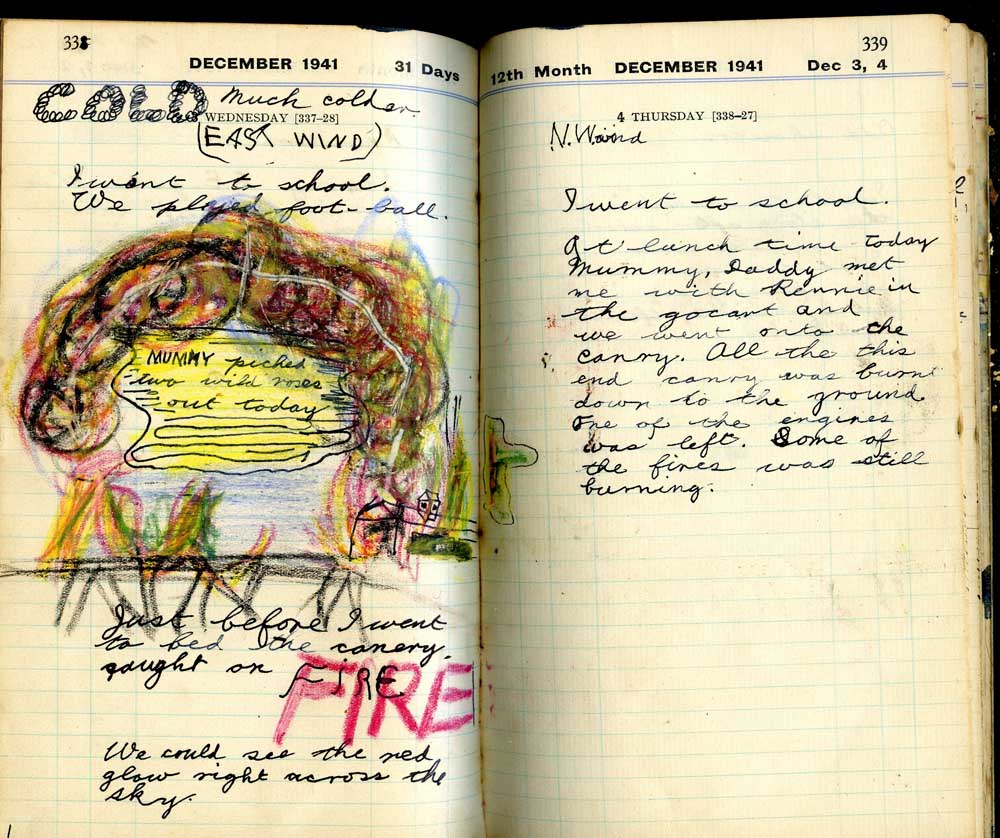 338
DECEMBER 1941 31 Days
COLD Much colder
WEDNESDAY [337-28]
(EAST WIND)
I went to school.
We played foot-ball.
MUMMY picked
two wild roses
out today
Just before I went
to bed the canery
caught on FIRE.
FIRE
We could see the red
glow right across the
sky.
339
12th Month DECEMBER 1941 Dec 3, 4
4 THURSDAY [338-27]
N. Waind
I went to school.
At lunch time today
Mummy, Daddy met
me with Rennie in
the gocart and
we went onto the
canry. All the this
end canry was burnt
down to the ground
One of the engines
was left. Some of
the fires was still
burning.